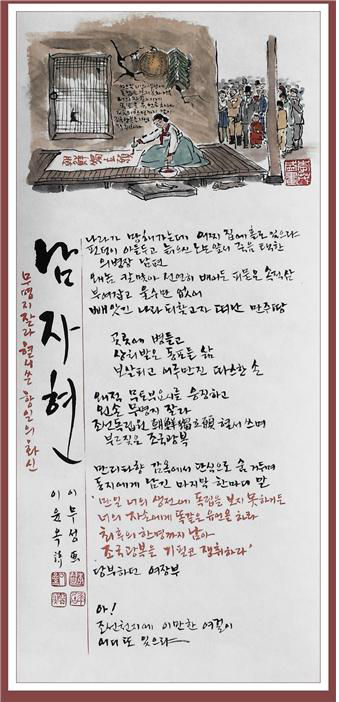 남자현
무명지 잘라 혈서 쓴 항일의 화신
이무성 畵
이윤옥 詩
나라가 망해 가는데 어찌 집에 홀로 있으랴
핏덩이 아들두고 늙으신 노모 앞서 죽음 택한
의병장 남편
왜놈 칼 맞아 선연히 배어든 피묻은 속적삼
부여잡고 울 수만 없어
빼앗긴 나라 되찾고자 떠난 만주땅
곳곳에 병들고
상처받은 동포들 삶
보살피고 어루만진 따스한 손
왜적 무토부요시를 응징하고
왼손 무명지 잘라
조선독립원 朝鮮獨立願 혈서 쓰며
부르짖은 조국광복
만리타향 감옥에서 단식으로 숨 거두며
동지에게 남긴 마지막 한마디 말
'만일 너의 생전에 독립을 보지 못하거든
너의 자손에게 똑같은 유언을 하라
최후의 한명까지 남아
조국광복을 기필코 쟁취하라'
당부하던 여장부
아!
조선천지에 이만한 여걸이
어디 또 있으랴